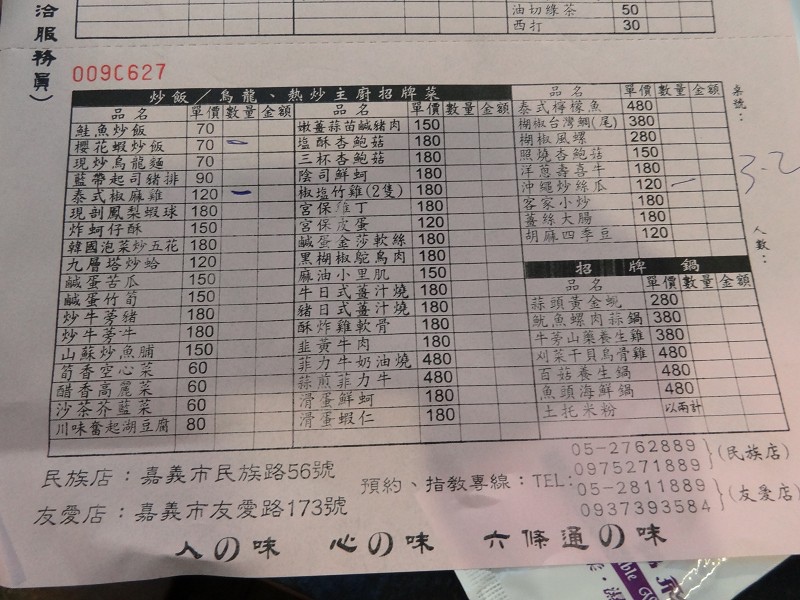 洽服務員)
油切綠茶 50
西打 30
009C627
炒飯/烏龍、熱炒主廚招牌菜
品名 單價 數量 金額
鮭魚炒飯 70
櫻花蝦炒飯 70
現炒烏龍麵 70
藍帶起司豬排 90
泰式椒麻雞 120
現剖鳳梨蝦球 180
炸蚵仔酥 150
韓國泡菜炒五花 180
九層塔炒蛤 120
鹹蛋苦瓜 150
鹹蛋竹筍 150
炒牛蒡豬 180
炒牛蒡牛 180
山蘇炒魚脯 150
筍香空心菜 60
醋香高麗菜 60
沙茶芥藍菜 60
川味奮起湖豆腐 80
品名 單價 數量 金額
嫩薑蒜苗鹹豬肉 150
塩酥杏鮑菇 180
三杯杏鮑菇 180
陰司鮮蚵 180
椒塩竹雞(2隻) 180
宮保雞丁 180
宮保皮蛋 120
鹹蛋金莎軟絲 180
黑胡椒鴕鳥肉 180
麻油小里肌 150
牛日式薑汁燒 180
豬日式薑汁燒 180
酥炸雞軟骨 180
韭黃牛肉 180
菲力牛奶油燒 480
蒜煎菲力牛 480
滑蛋鮮蚵 180
滑蛋蝦仁 180
品名 單價 數量 金額
泰式檸檬魚 480
椒鹽台灣鯛(尾) 380
胡椒風螺 280
照燒杏鮑菇 150
洋蔥壽喜牛 180
沖繩炒絲瓜 120
客家小炒 180
薑絲大腸 180
胡麻四季豆 120
招牌鍋
品名 單價 數量 金額
蒜頭黃金蜆 280
魷魚螺肉蒜鍋 380
牛蒡山藥養生雞 380
刈菜干貝烏骨雞 480
百菇養生鍋 480
魚頭海鮮鍋 480
土托米粉 以兩計
桌號:
3-2
人數:
民族店:嘉義市民族路56號
友愛店:嘉義市友愛路173號
預約、指教專線:TEL:
05-2762889
0975271889
(民族店)
05-2811889
0937393584
(友愛店)
人の味 心の味 六條通の味